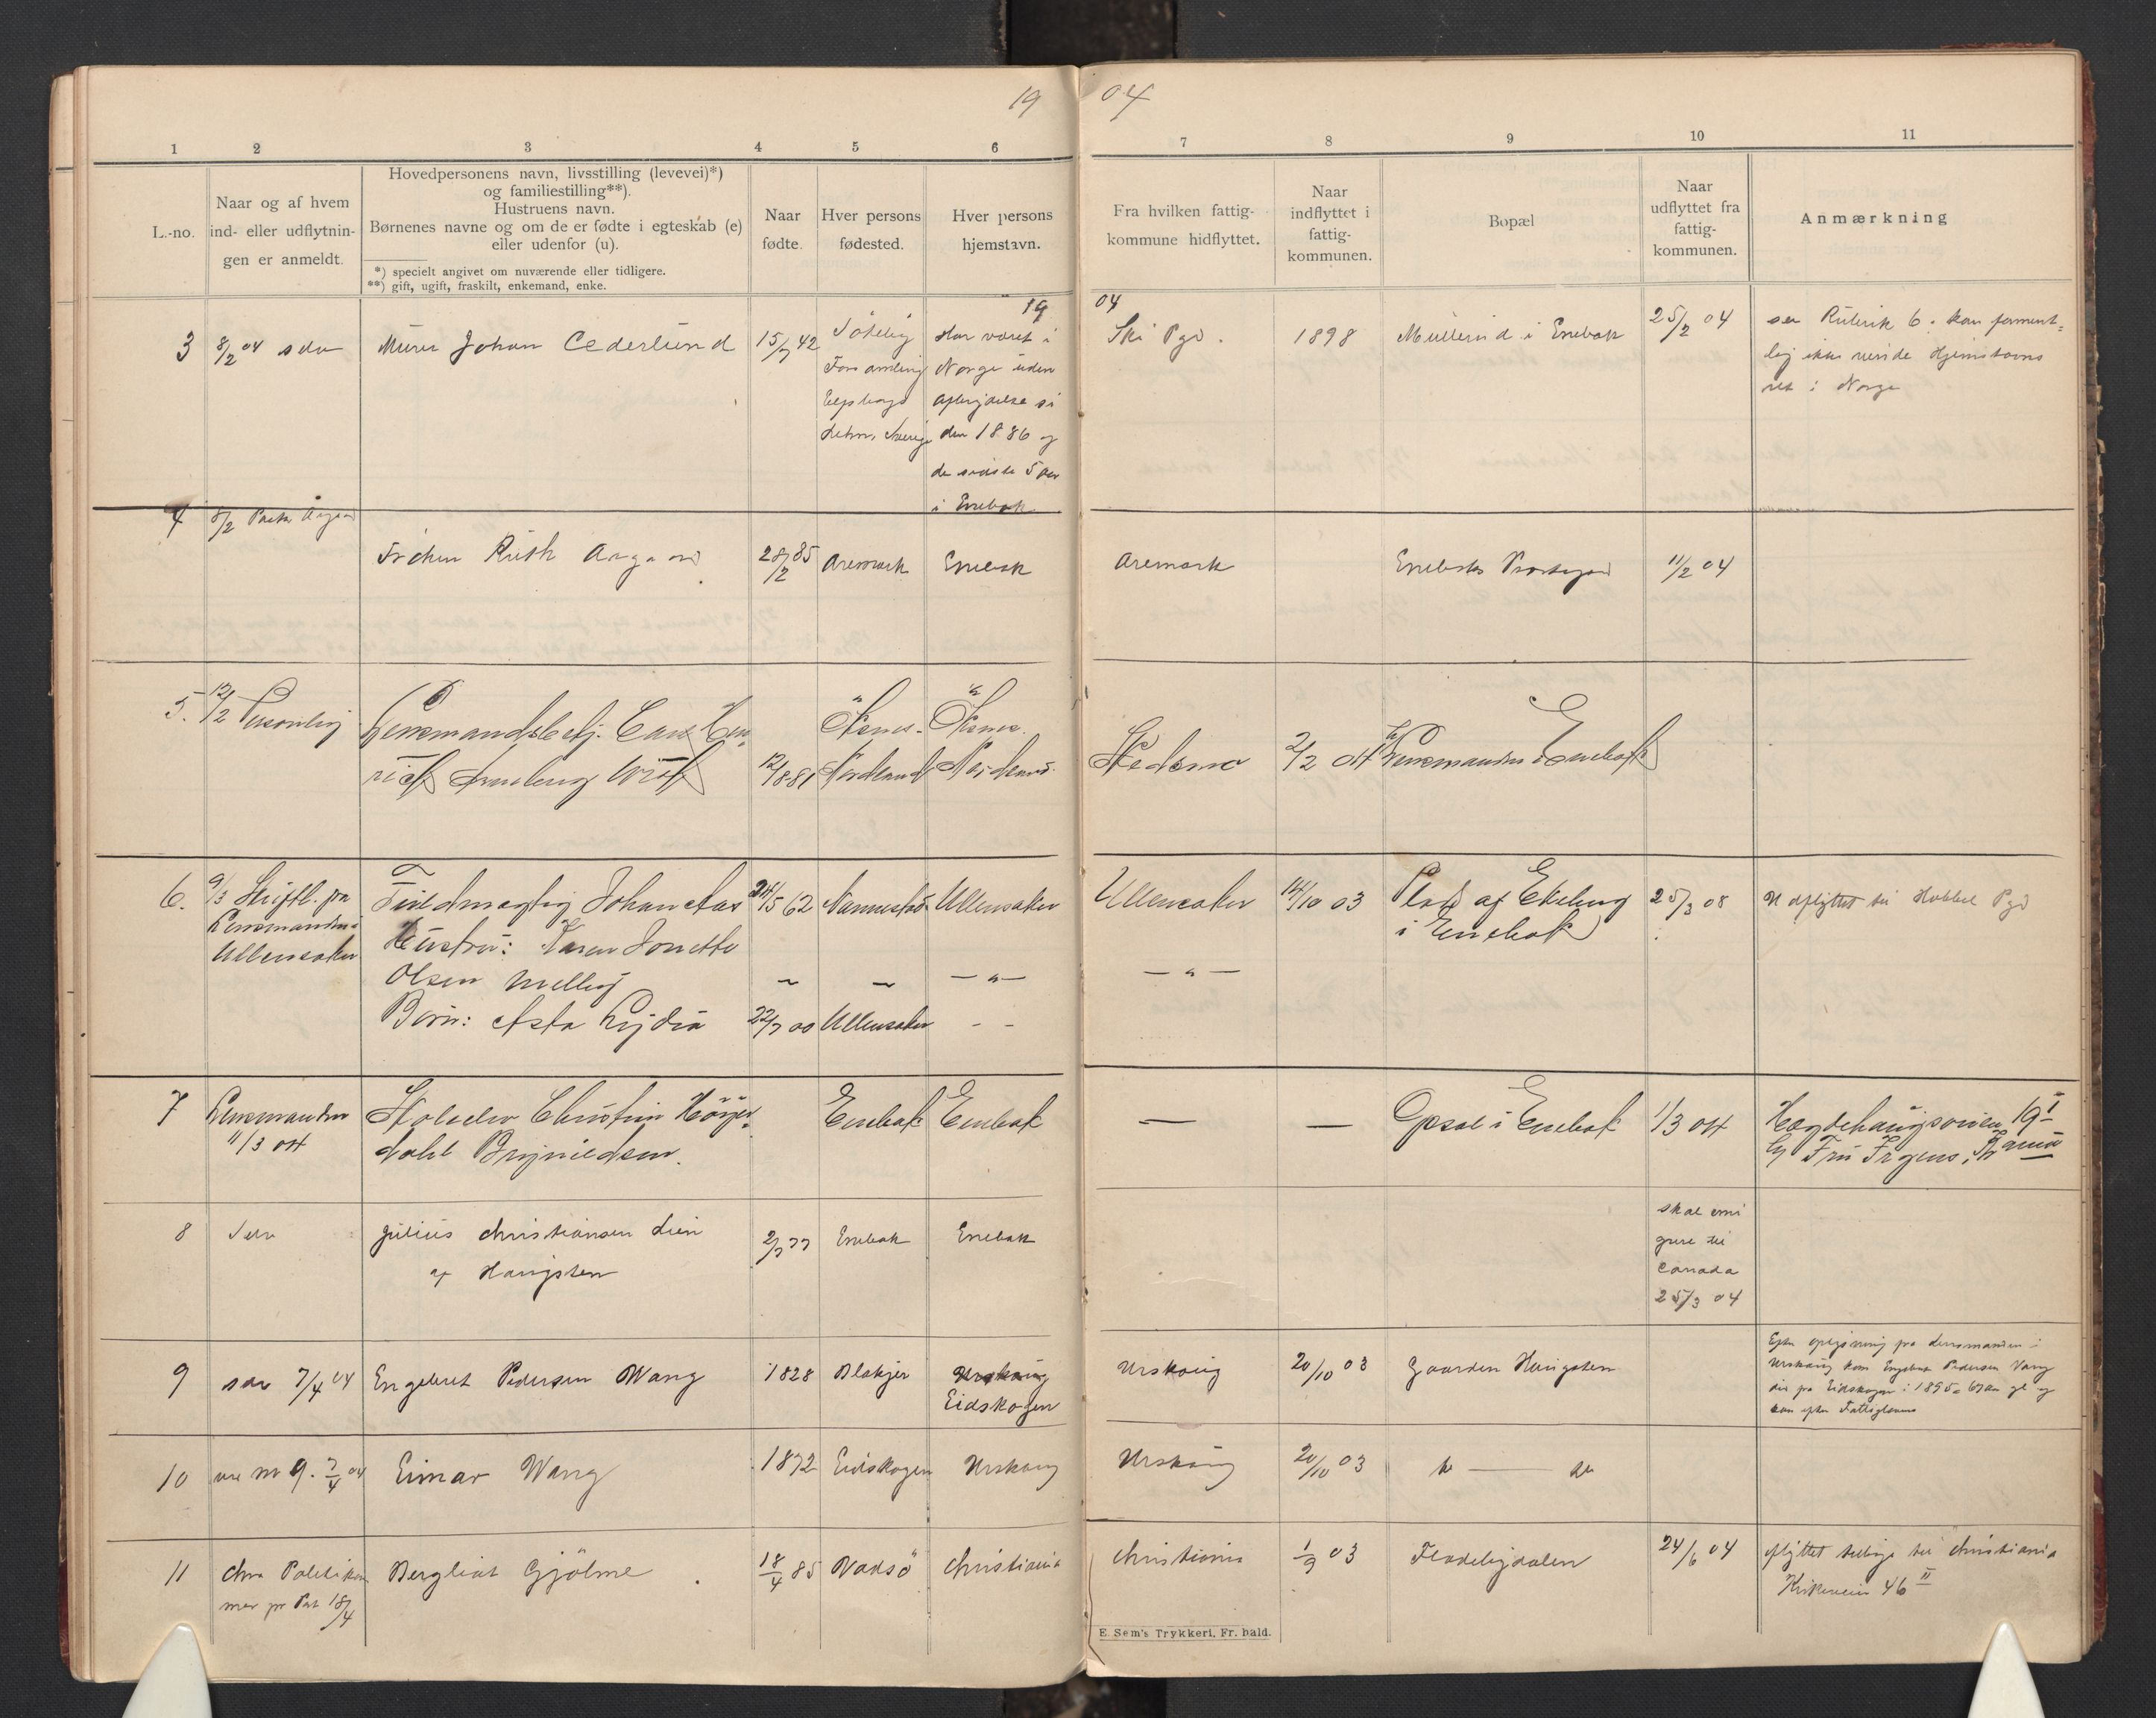 19 04
1 2 3 4 5 6 7 8 9 10 11
L.-no.
Naar og af hvem
ind- eller udflytnin-
gen er anmeldt.
Hovedpersonens navn, livsstilling (levevei)*)
og familiestilling**).
Hustruens navn.
Børnenes navne og om de er fødte i egteskab (e)
eller udenfor (u).
*) specielt angivet om nuværende eller tidligere.
**) gift, ugift, fraskilt, enkemand, enke.
Naar
fødte.
Hver persons
fødested.
Hver persons
hjemstavn.
Fra hvilken fattig-
kommune hidflyttet.
Naar
indflyttet i
fattig-
kommunen.
Bopæl
Naar
udflyttet fra
fattig-
kommunen.
Anmærkning
19 04
3
8/2 04 selv
Murer Johan Cederlund
15/7 42
Forsamling
Elfsborgs
Sverige
Har været i
Norge uden
afbrydelse si
den 1886 og
de sidste 5 aar
i Enebak
Ski Pgd.
1898
i Enebak
25/2 04
se Rubrik 6. kan forment-
lig ikke Hjemstavns
ret i Norge
4
8/2
Frøken Ruth Aagaard
28/2 85
Aremark
Enebak
Aremark
Enebaks Præstegaard
11/2 04
5.
12/2 Personlig
Lensmandsbetj.
12/8 81
Nordland
Nordland
Skedsmo
2/2 04
Lensmanden i Enebak
6.
9/3 Skriftl. fra
Lensmanden i
Ullensaker
Johan Aas
Hustru: Karen Jonette
Olsen
Børn: Asta Lydia
24/5 62
22/7 00
Nannestad
Ullensaker
Ullensaker
— " —
- -
Ullensaker
— " —
14/10 03
Plads af Ekeberg
i Enebak
25/3 08
Udflyttet til Hobbøl Pgd
7
Lensmanden
11/3 04
Christian
Enebak
Enebak
—
—
Opsal i Enebak
1/3 04
Hægdehaugsveien 19 I
8
Selv
Julius Christiansen Lien
af Haugsten
2/7 77
Enebak
Enebak
skal emi
grere til
Canada
25/3 04
9
selv 7/4 04
Engebret Pedersen Wang
1828
Blakjer
Urskoug
Eidskogen
Urskoug
20/10 03
Gaarden Haugsten
Efter oplysning fra Lensmanden i
Urskoug kom Engebret Pedersen Vang
did fra Eidskogen i 1895
10
nr 9. 7/4 04
Einar Wang
1872
Eidskogen
Urskoug
Urskoug
20/10 03
do — do
11
Chra Politikam
mer pr Post 18/4
Bergliot Gjölme
18/4 85
Vadsö
Christiania
Christiania
1/9 03
Fladebydalen
24/6 04
flyttet tilbage til Christiania
Kirkeveien 46 II
E. Sem's Trykkeri, Fr. hald.